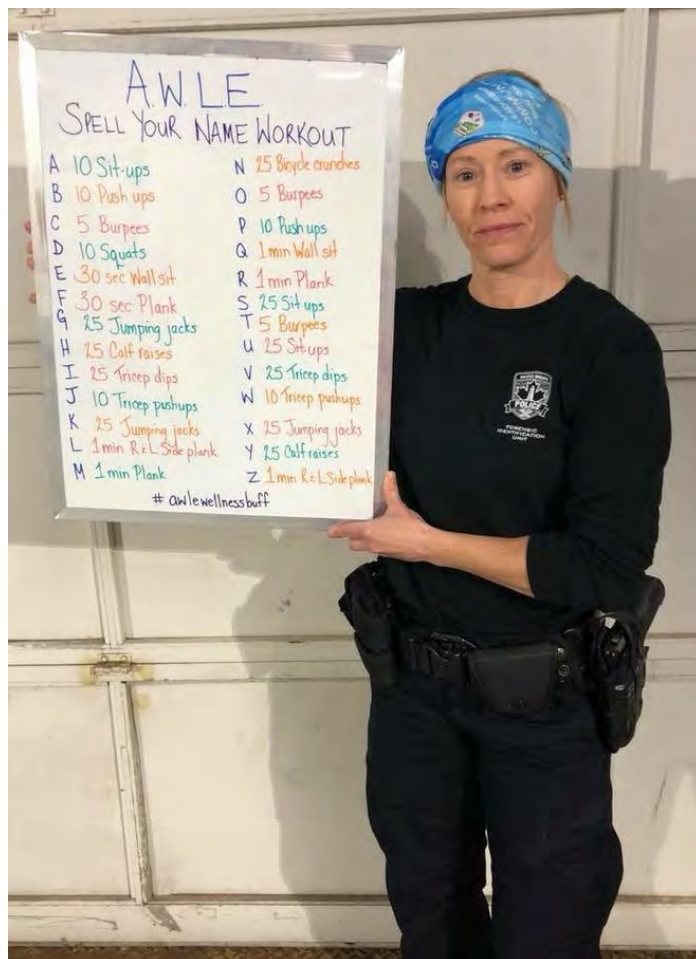 A.W.L.E.
SPELL YOUR NAME WORKOUT
A 10 Sit-ups
B 10 Push ups
C 5 Burpees
D 10 Squats
E 30 sec Wall sit
F 30 sec Plank
G 25 Jumping jacks
H 25 Calf raises
I 25 Tricep dips
J 10 Tricep pushups
K 25 Jumping jacks
L 1 min R & L Side plank
M 1 min Plank
N 25 Bicycle crunches
O 5 Burpees
P 10 Push ups
Q 1 min Wall sit
R 1 min Plank
S 25 Sit ups
T 5 Burpees
U 25 Sit-ups
V 25 Tricep dips
W 10 Tricep pushups
X 25 Jumping jacks
Y 25 Calf raises
Z 1 min R & L Side plank
# awlewellnessbuff
POLICE
FORENSIC
IDENTIFICATION
UNIT